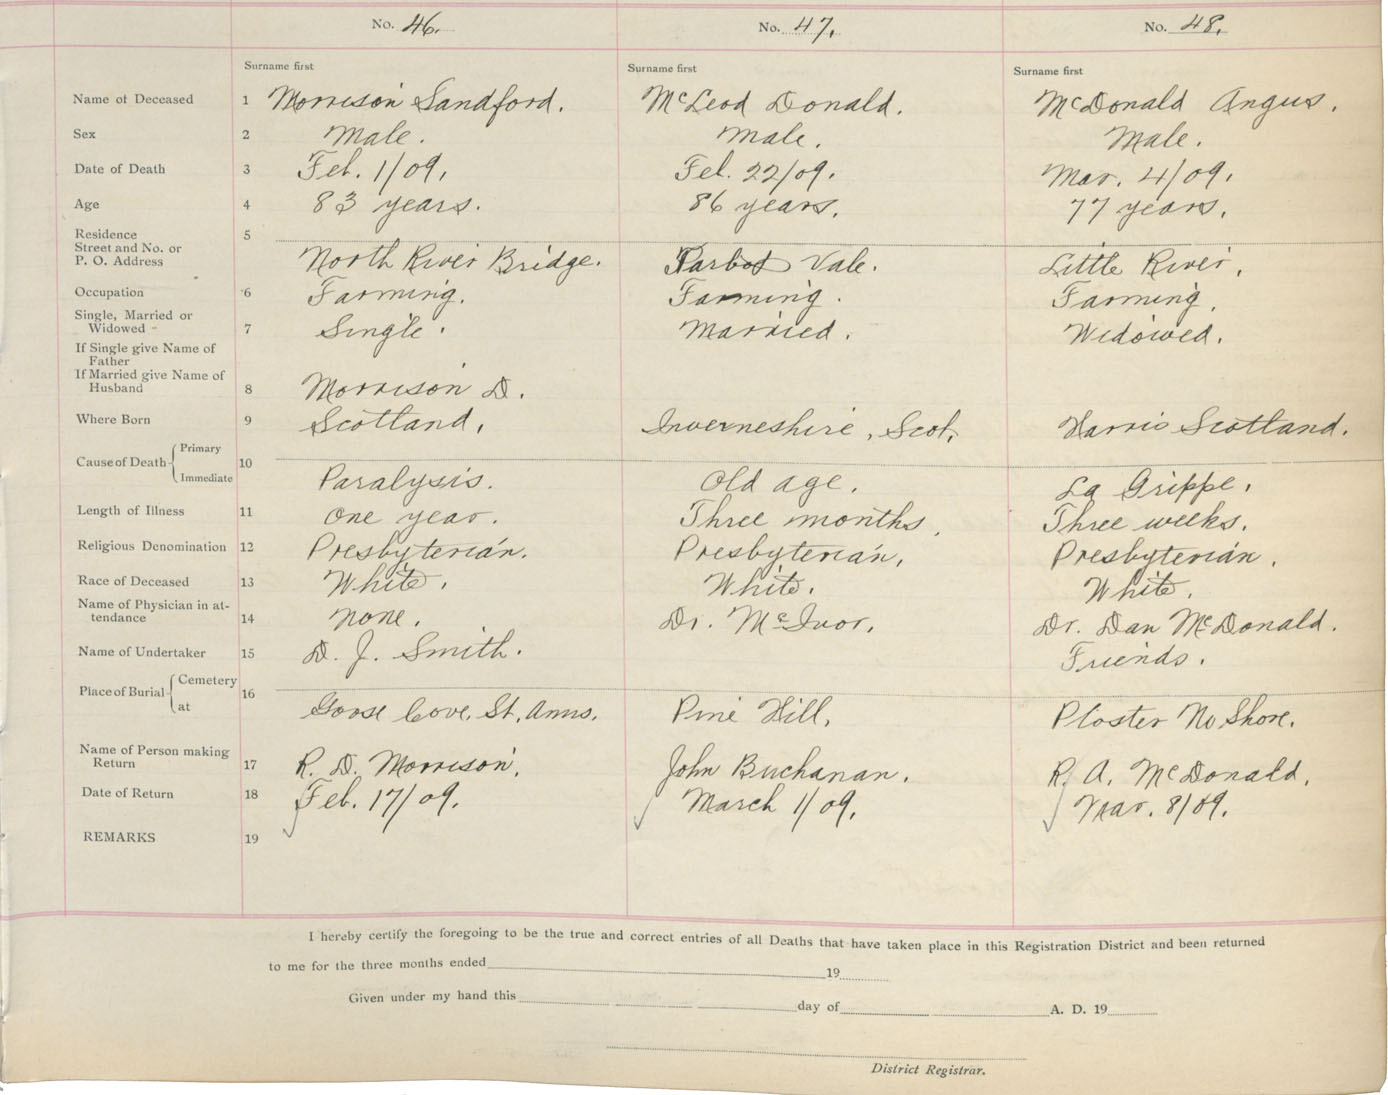 No. 46. No. 47. No. 48.
Surname first Surname first Surname first
Name of Deceased 1 Morrison Sandford. McLeod Donald. McDonald Angus.
Sex 2 Male. Male. Male.
Date of Death 3 Feb. 1/09. Feb. 22/09. Mar. 4/09.
Age 4 83 years. 86 years. 77 years.
Residence 5
Street and No. or
P. O. Address North River Bridge. Tarbot Vale. Little River.
Occupation 6 Farming. Farming. Farming.
Single, Married or
Widowed 7 Single. Married. Widowed.
If Single give Name of
Father
If Married give Name of
Husband 8 Morrison D.
Where Born 9 Scotland. Inverneshire, Scot. Harris Scotland.
Cause of Death Primary 10
Immediate Paralysis. Old age. La Grippe.
Length of Illness 11 One year. Three months. Three weeks.
Religious Denomination 12 Presbyterian. Presbyterian. Presbyterian.
Race of Deceased 13 White. White. White.
Name of Physician in at-
tendance 14 None. Dr. McIvor. Dr. Dan McDonald.
Name of Undertaker 15 D. J. Smith. Friends.
Place of Burial Cemetery 16
at Goose Cove, St. Anns. Pine Hill. Plaster No Shore.
Name of Person making
Return 17 R. D. Morrison. John Buchanan. R. A. McDonald.
Date of Return 18 Feb. 17/09. March 1/09. Mar. 8/09.
REMARKS 19
I hereby certify the foregoing to be the true and correct entries of all Deaths that have taken place in this Registration District and been returned
to me for the three months ended 19
Given under my hand this day of A. D. 19
District Registrar.